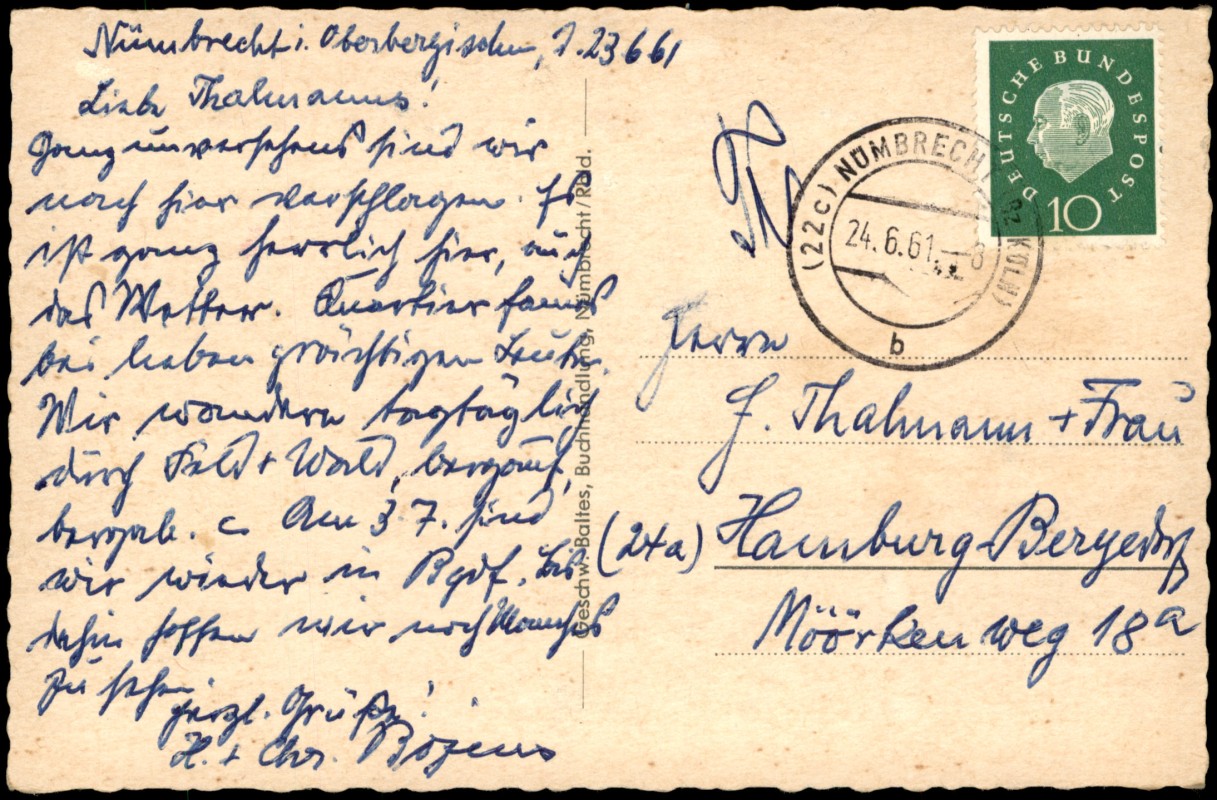 Nümbrecht i. Oberbergischen, d. 23 6 61
Liebe Thalmanns!
Ganz unversehens sind wir
nach hier verschlagen. Es
ist ganz herrlich hier, auch
das Wetter. Quartier famos
bei lieben prächtigen Leuten.
Wir wandern tagtäglich
durch Feld + Wald, bergauf,
bergab. – Am 3. 7. sind
wir wieder in Bgdf. Bis
dahin hoffen wir noch Manches
zu sehen.
Herzl. Grüße!
H. + Chr.
Geschw. Baltes, Buchhandlung, Nümbrecht/Rhld.
DEUTSCHE BUNDESPOST
10
(22c) NÜMBRECHT
KÖLN)
24.6.61.–8
b
Herrn
J. Thalmann + Frau
(24a) Hamburg-Bergedorf
Möörkenweg 18a